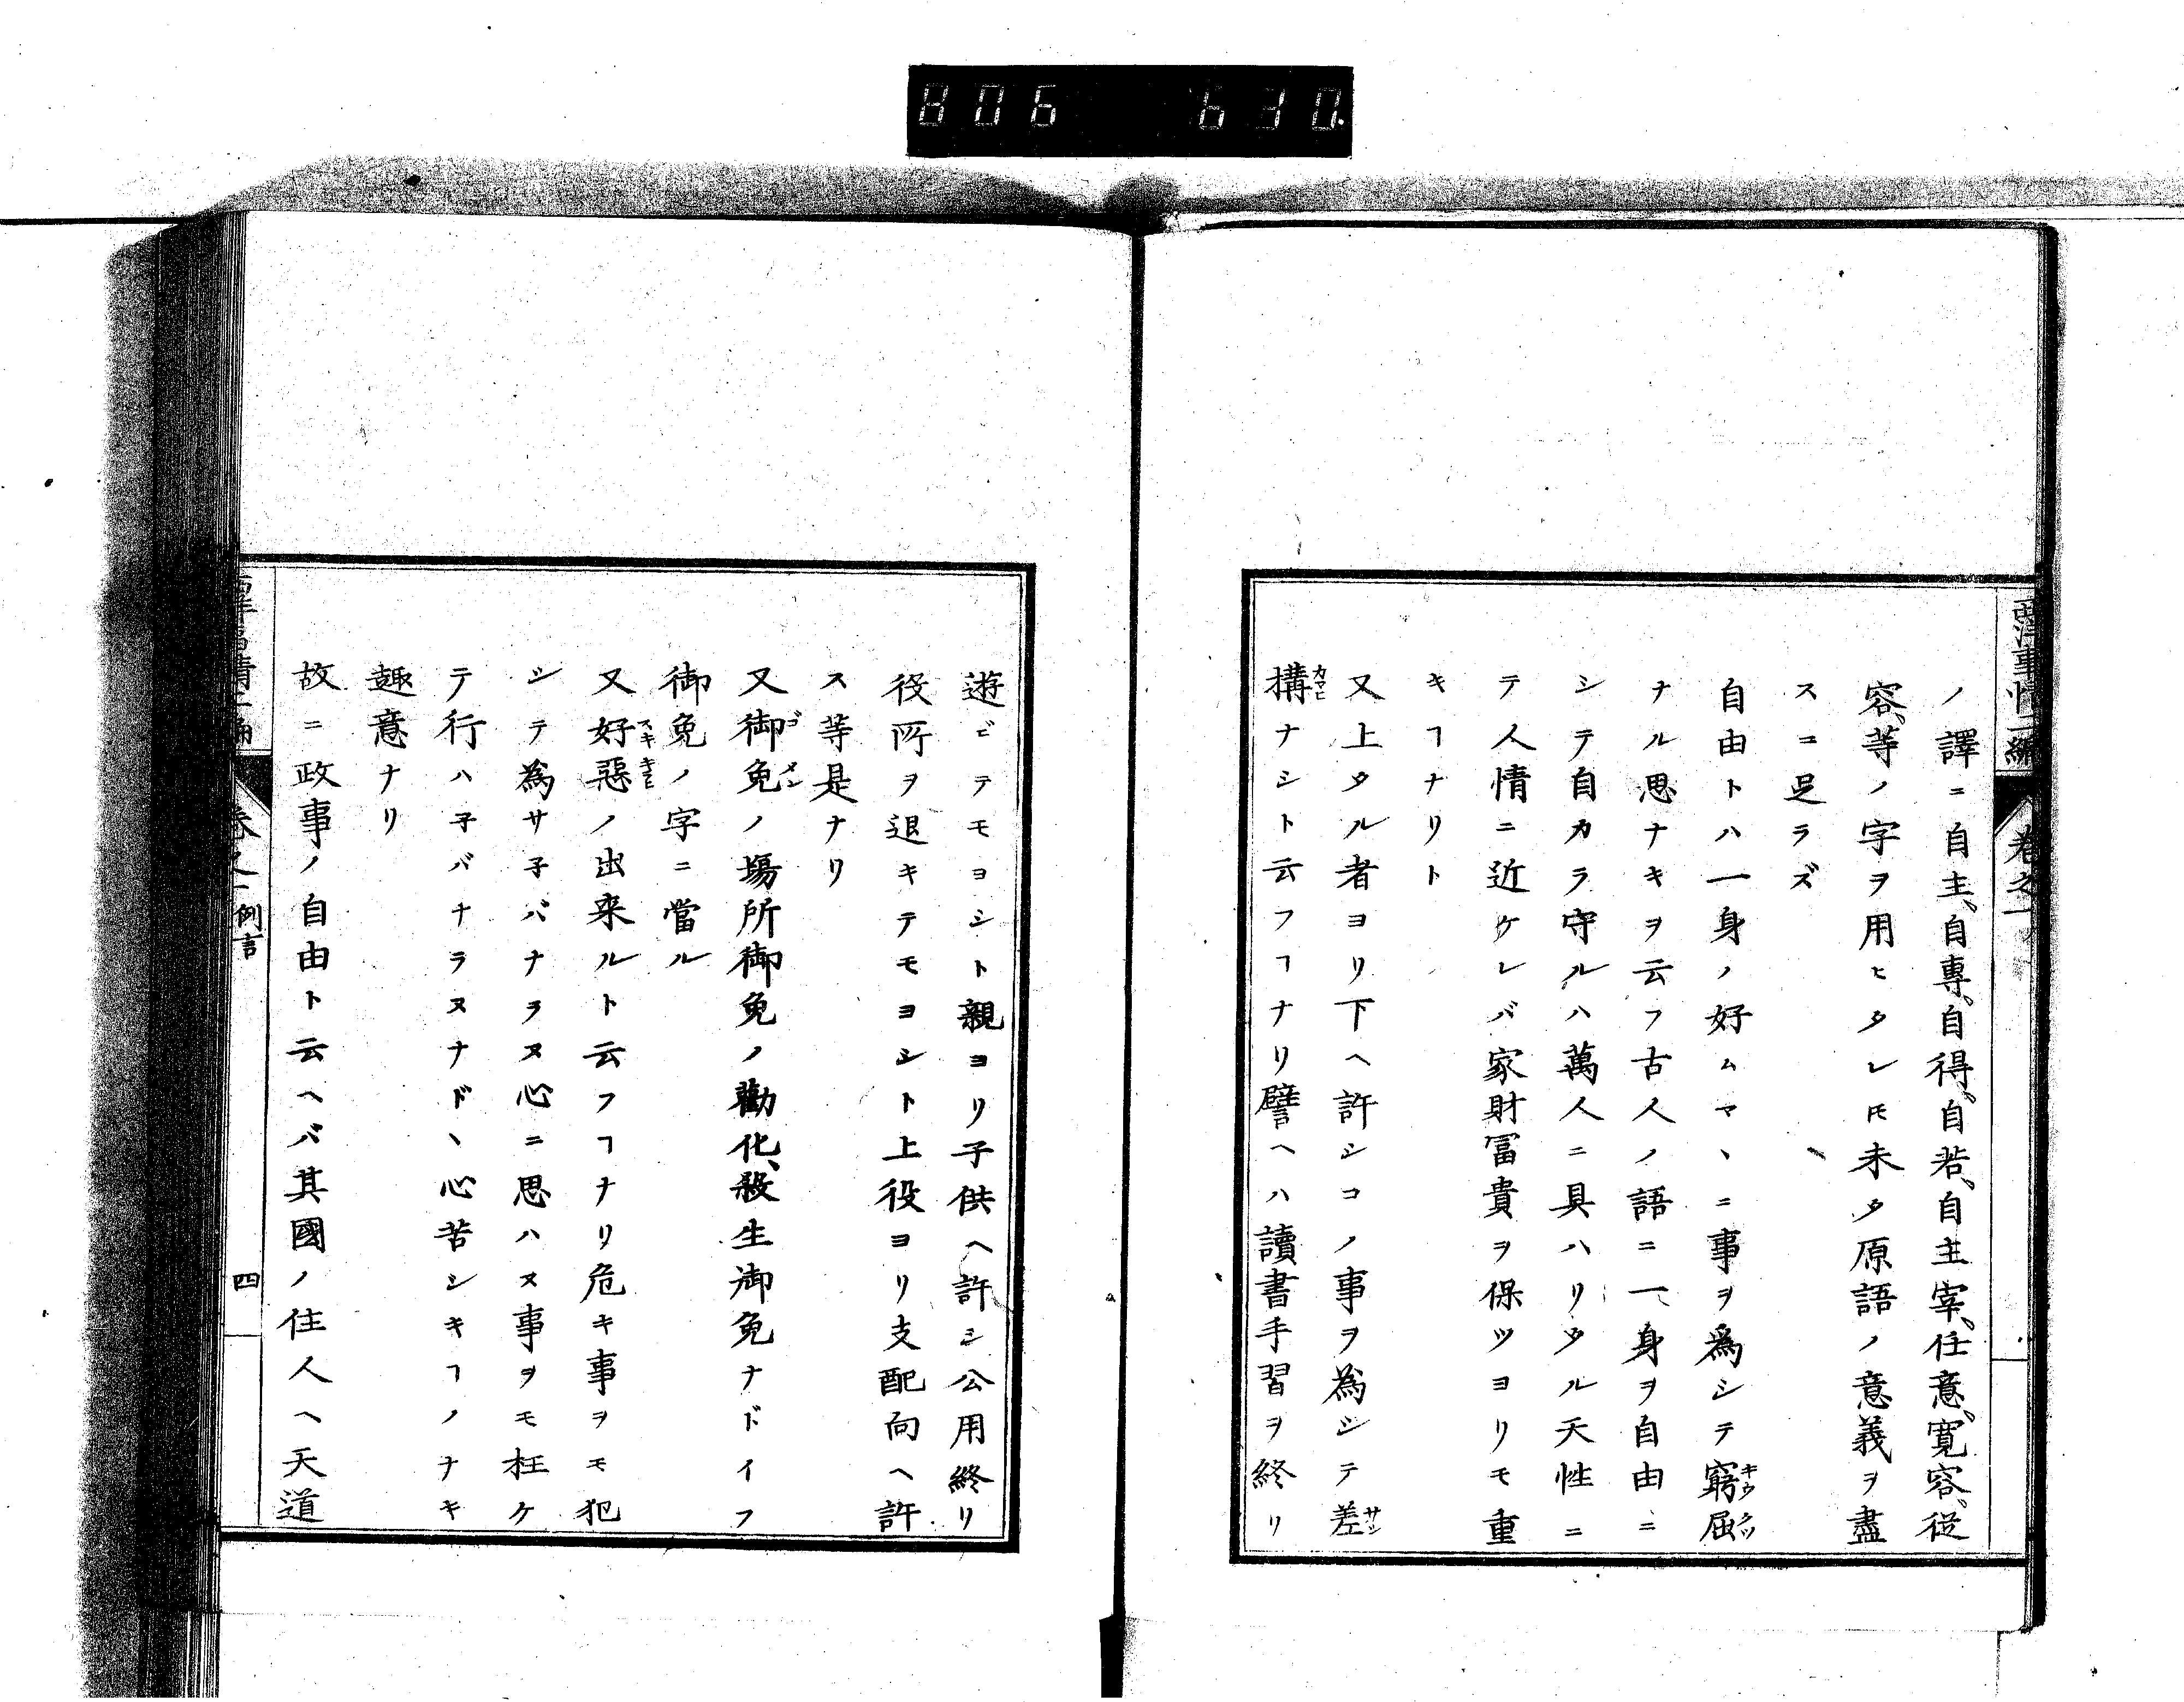 806 630.
西洋事情二編 巻之一
ノ譯ニ自主、自專、自得、自若、自主宰、任意、寛容、從
容、等ノ字ヲ用ヒタレ𪜈未タ原語ノ意義ヲ盡
スニ足ラズ
自由トハ一身ノ好ムマヽニ事ヲ爲シテ窮屈キウクツ
ナル思ナキヲ云フ古人ノ語ニ一身ヲ自由ニ
シテ自カラ守ルハ萬人ニ具ハリタル天性ニ
テ人情ニ近ケレバ家財冨貴ヲ保ツヨリモ重
キヿナリト
又上タル者ヨリ下ヘ許シコノ事ヲ為シテ差サシ
構カマヒナシト云フヿナリ譬ヘハ讀書手習ヲ終リ
遊ビテモヨシト親ヨリ子供ヘ許シ公用終リ
役所ヲ退キテモヨシト上役ヨリ支配向ヘ許
ス等是ナリ
又御免ゴメンノ塲所御免ノ勸化、殺生御免ナドイフ
御免ノ字ニ當ル
又好惡スキキラヒノ出来ルト云フヿナリ危キ事ヲモ犯
シテ為サ子バナラヌ心ニ思ハヌ事ヲモ枉ケ
テ行ハ子バナラヌナドヽ心苦シキヿノナキ
趣意ナリ
故ニ政事ノ自由ト云ヘバ其國ノ住人ヘ天道
西洋事情二編 巻之一 例言 四